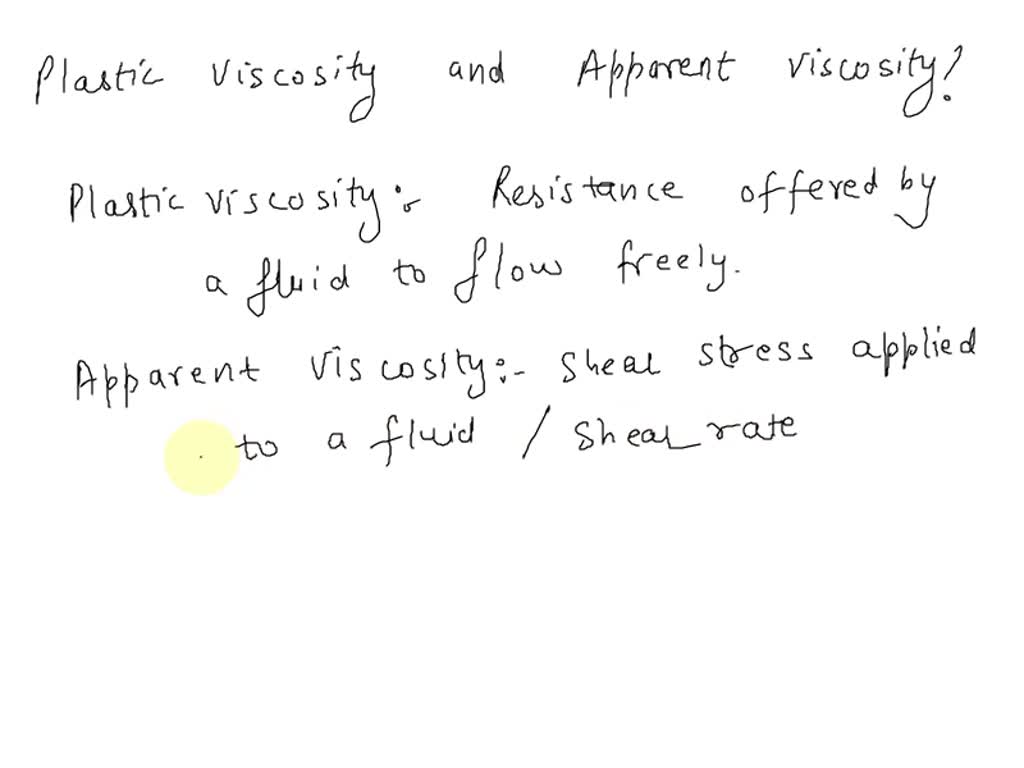 Plastic Viscosity and Apparent Viscosity?
Plastic viscosity:- Resistance offered by
a fluid to flow freely.
Apparent Viscosity:- Shear stress applied
to a fluid / Shear rate